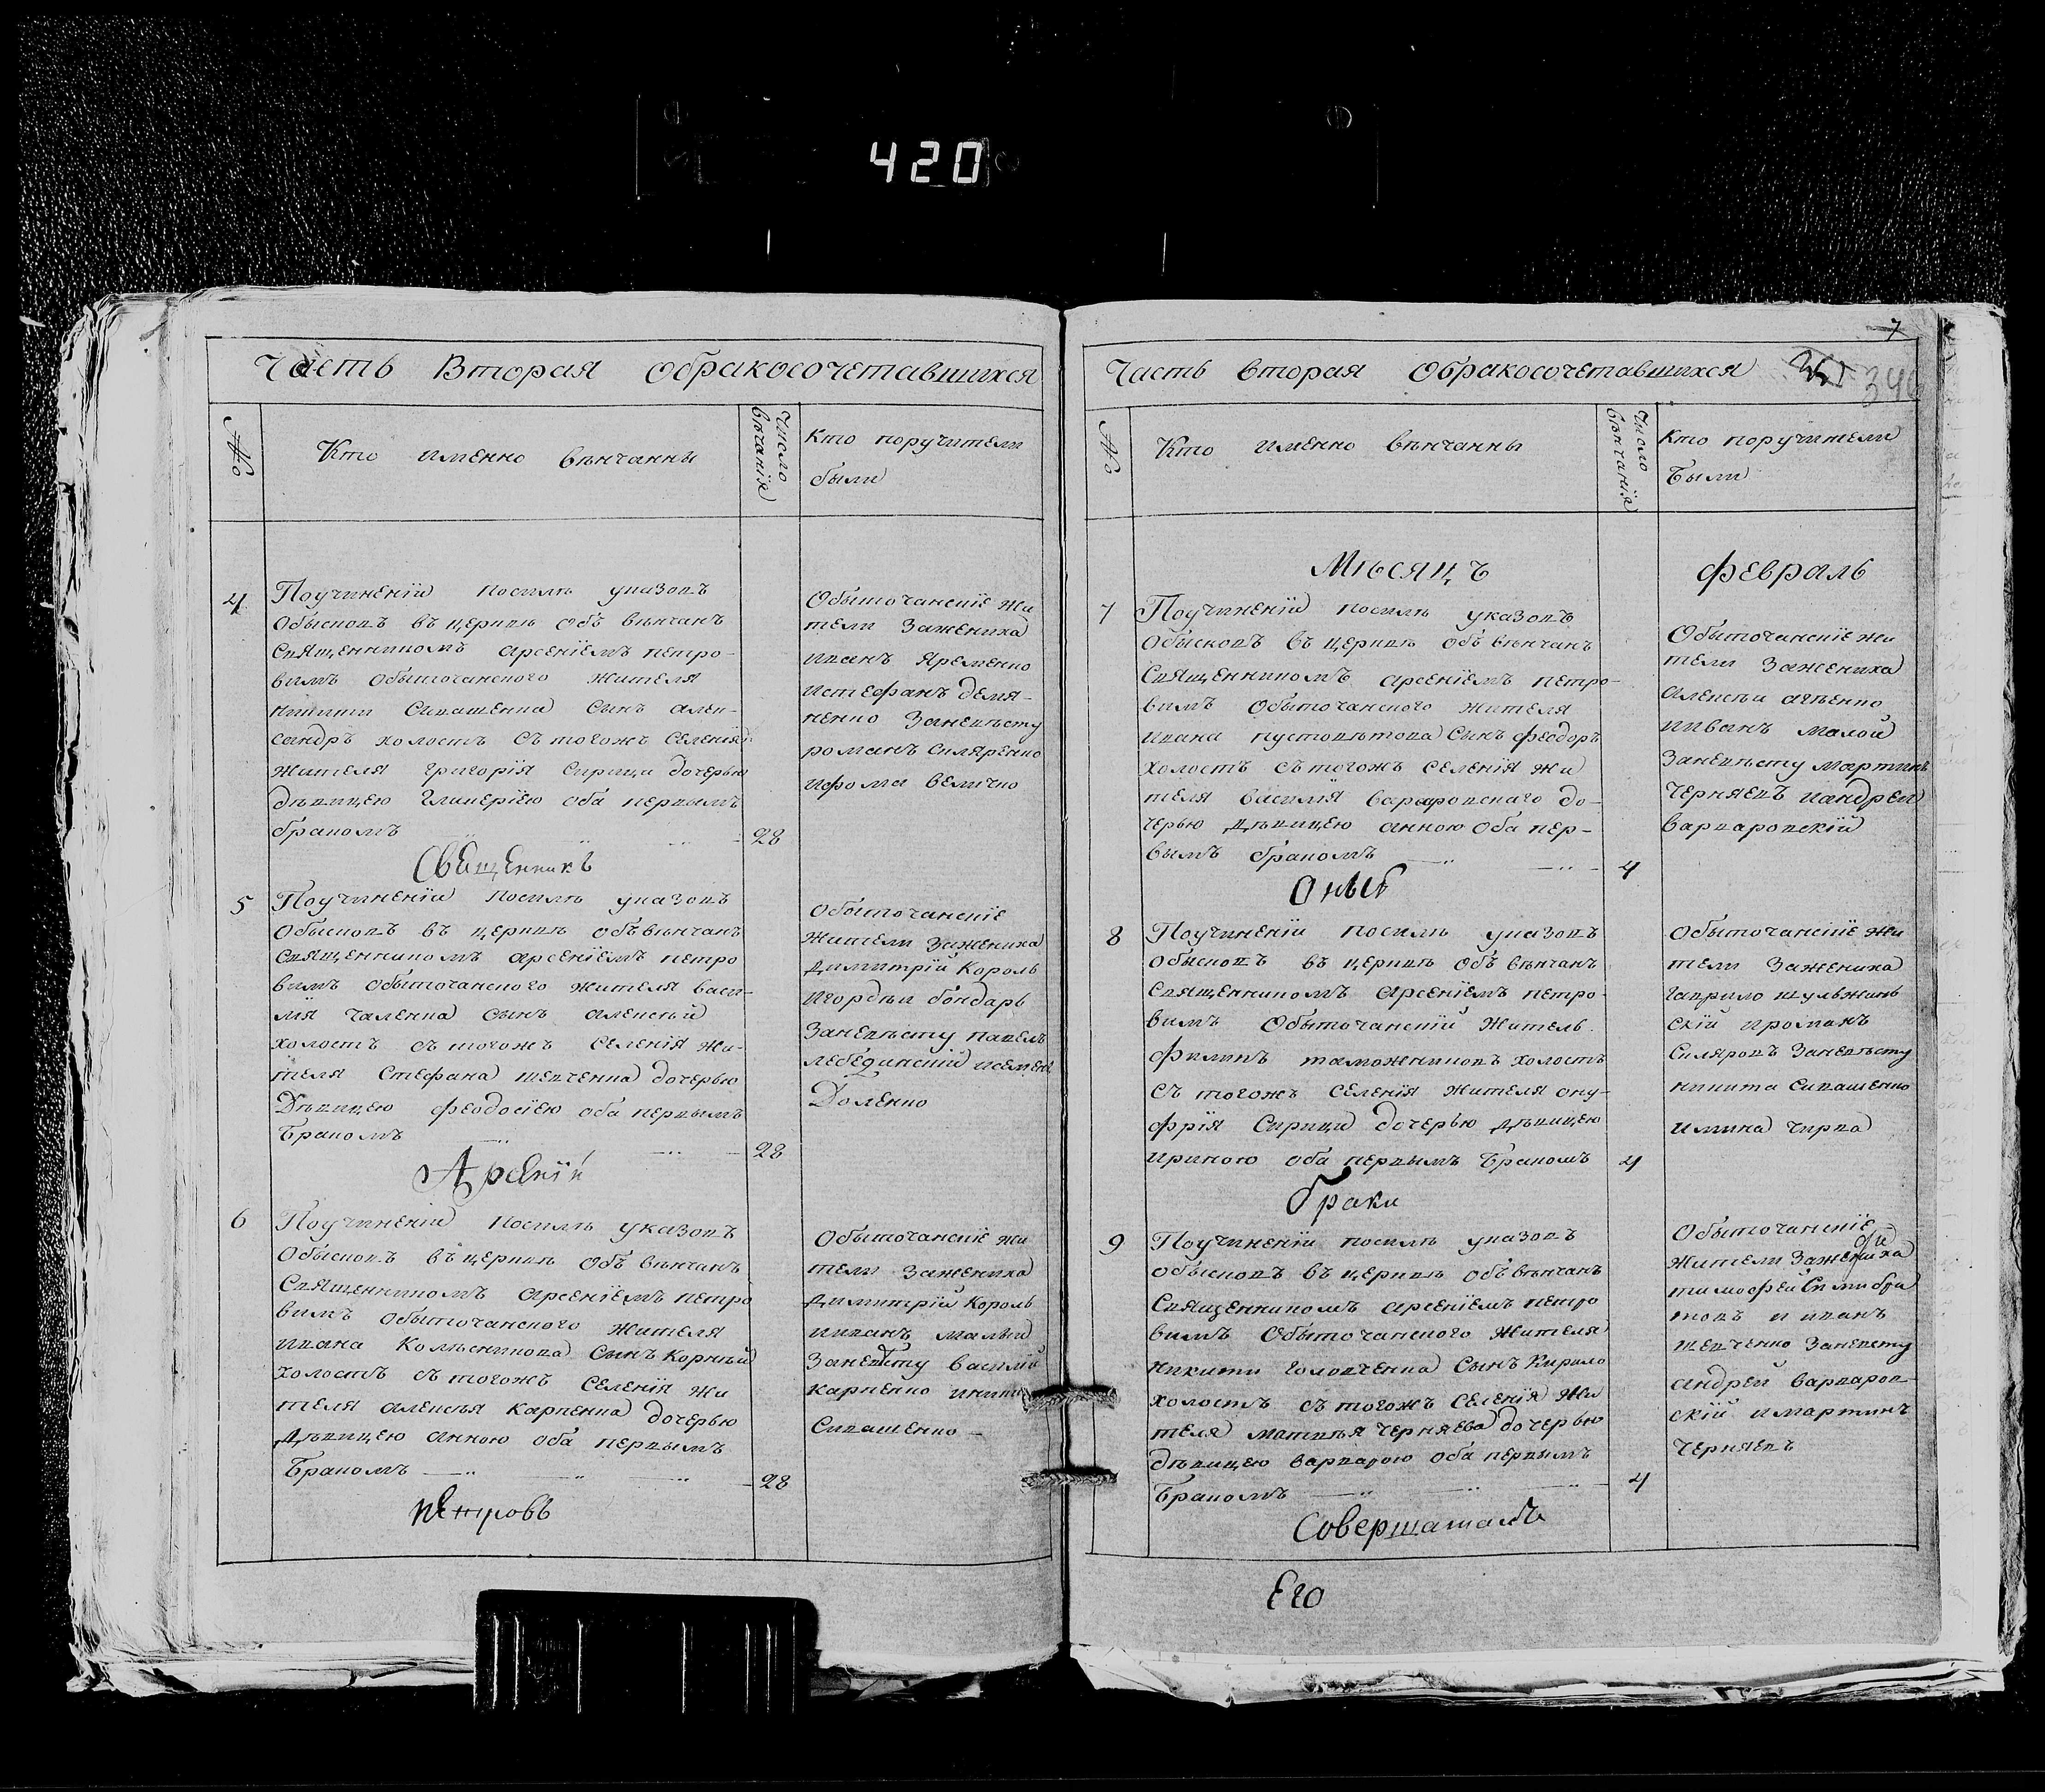 420
Часть Вторая обракосочетавшихся
№
Кто именно вѣнчанны
Число вѣнчанія
Кто поручители
были
4
Поучиненіи посилѣ указовъ
обысковъ въ церквѣ объ вѣнчанъ
Священникомъ арсеніемъ петро-
вимъ обыточанского жителя
никити Сивашенка Синъ алек-
сандръ холостъ съ тогожъ Селенія
жителя григорія Сирици дочерью
дѣвицею гликеріею оба первымъ
бракомъ
28
Обыточанскіе жи
тели Заженика
иванъ Яременко
истефанъ демя-
ненко Заневѣсту
романъ Скляренко
ифома величко
Священникъ
5
Поучиненіи посилѣ указовъ
обысковъ въ церквѣ объ вѣнчанъ
священникомъ арсеніемъ петро
вимъ обыточанского жителя васи-
лія чаленка сынъ алексѣй
холостъ съ тогожъ Селенія жи-
теля Стефана шевченка дочерью
Дѣвицею феодосіею оба первымъ
Бракомъ
28
обыточанскіе
жители Заженика
димитрій Король
игордѣи бондарь
Заневѣсту павелъ
лебединскій исемен
Доленко
Арсеній
6
Поучиненіи посилѣ указовъ
Обысковъ въ церквѣ объ вѣнчанъ
Священникомъ арсеніемъ петро
вимъ обыточанского жителя
ивана Колѣсникова сынъ Корнѣй
холостъ съ тогожъ Селенія жи
теля алексѣя Карпенка дочерью
Дѣвицею анною оба первымъ
Бракомъ
28
Обыточанскіе жи
тели Заженика
димитрій Король
иванъ малый
Заневѣсту василій
карпенко иники
Сивашенко
петровъ
7
346
Часть вторая Обракосочетавшихся
№
Кто именно вѣнчанны
Число вѣнчанія
Кто поручители
Были
Мѣсяцъ
февраль
7
Поучиненіи посилѣ указовъ
обысковъ въ церквѣ объ вѣнчанъ
Священникомъ арсеніемъ петро-
вимъ обыточанского жителя
ивана пустовѣтова Синъ феодоръ
холостъ съ тогожъ Селенія жи
теля василія варваровскаго до-
черью дѣвицею анною оба пер-
вымъ бракомъ
4
Обыточанскіе жи
тели Заженика
алексѣи
ииванъ малой
Заневѣсту мартинъ
Чернявъ иандрей
варваровскій
Оныя
8
Поучиненіи посилѣ указовъ
обысковъ въ церквѣ объ вѣнчанъ
Священникомъ Арсеніемъ петро-
вимъ Обыточанскій житель
филипъ таможниковъ холостъ
съ тогожъ селенія жителя ону-
фрія Сирици дочерью дѣвицею
ириною оба первымъ бракомъ
4
Обыточанскіе жи
тели Заженика
гаврило шульжин
скій ироманъ
Скляровъ Заневѣсту
никита сивашенко
имина чирва
браки
9
Поучиненіи посилѣ указовъ
обысковъ въ церквѣ объ вѣнчанъ
Священникомъ арсеніемъ петро
вимъ обыточанского жителя
никити головченка Сынъ Кирило
холостъ съ тогожъ Селенія жи
теля матвѣя Черняева дочерью
дѣвицею варварою оба первымъ
Бракомъ
4
Обыточанскіе
жители Заженика
тимофей
товъ и иванъ
шевченко Заневѣсту
андрей варваров-
скій имартинъ
Чернявъ
Совершашалъ
Его